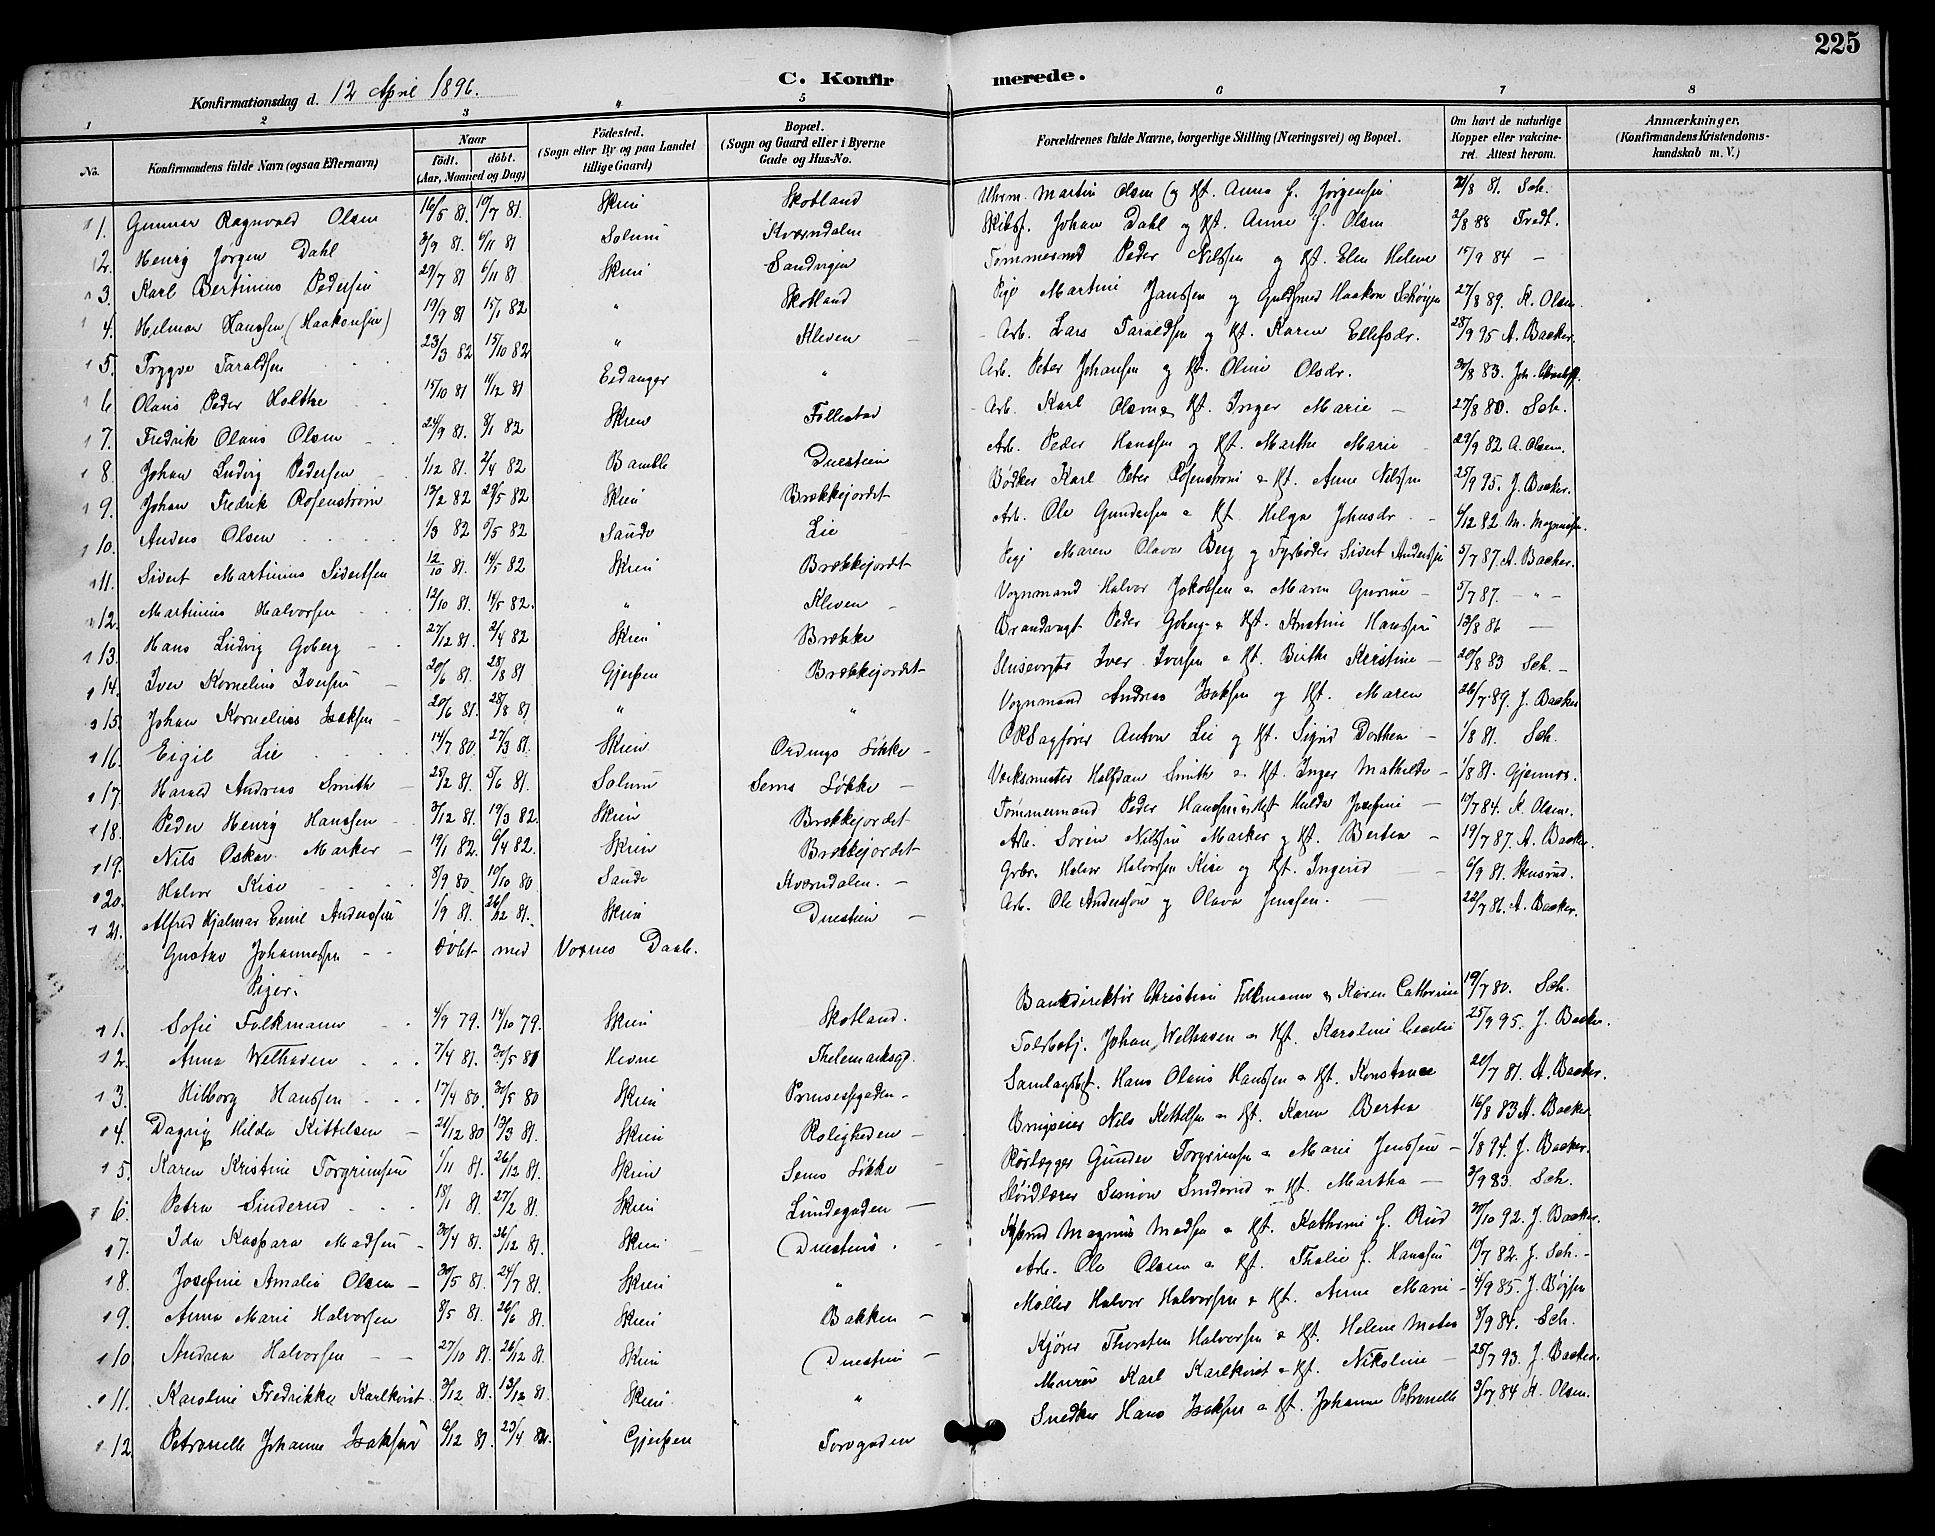 225
Konfirmationsdag d. 12 April 1896.
C. Konfirmerede.
1 2 3 4 5 6 7 8
No. Konfirmandens fulde Navn (ogsaa Efternavn) Naar født. døbt. (Aar, Maaned og Dag) Fødested. (Sogn eller By og paa Landet tillige Gaard) Bopæl. (Sogn og Gaard eller i Byerne Gade og Hus-No. Forældrenes fulde Navne, borgerlige Stilling (Næringsvei) og Bopæl. Om havt de naturlige Kopper eller vakcineret. Attest herom. Anmærkninger. (Konfirmandens Kristendomskundskab m. V.)
1. Gunnar Ragnvald Olsen 16/5 81. 10/7 81. Skien Skotland Uhrm. Martin Olsen og Kst. Anna f. Jørgensen 21/8 81. Sch.
2. Henrij Jørgen Dahl 3/9 81. 6/11 81 Solum Kværndalen Skibsf. Johan Dahl og Kst. Anne f. Olsen 2/8 88 Fredt.
3. Karl Bertinius Pedersen 29/7 81 6/11 81 Skien Sandvigen Tømmermd Peder Nilsen og Kst. Elen Helene 15/9 84 —
4. Helmar Hanssen (Haakonsen) 19/9 81 15/1 82 " Skotland Pige Martine Janssen og Guldsmed Haakon Schøyen 27/8 89. K. Olsen.
5. Trygve Taraldsen 23/3 82 15/10 82 " Kleven Arb. Lars Taraldsen og Kst. Karen Ellefsdr. 28/9 95 A. Backer.
6 Olaus Peder Holthe 15/10 81 11/12 81 Eidanger " Arb. Peter Johansen og Kst. Oline Olsdr. 30/8 83.
7. Fredrik Olaus Olsen 24/9 81. 8/1 82 Skien Follestad Arb. Karl Olsen & Kst. Inger Marie — 27/8 80. Sch.
8. Johan Ludvig Pedersen 1/12 81. 2/4 82 Bamble Duestien Arb. Peder Hanssen og Kst. Marthe Marie 29/9 82 A. Olsen.
9. Johan Fredrik Rosenstrøm 12/2 82 29/5 82 Skien Brækkejordet Bødker Karl Peter Rosenstrøm & Kst. Anne Nilsen 25/9 95. J. Backer.
10. Anders Olsen 1/3 82 5/5 82 Saude Lie Arb. Ole Gundersen & Kst. Helga Johnsdr. 4/12 82 M.
11. Sivert Martinius Sivertsen 12/10 81. 14/5 82 Skien Brækkejordet Pige Maren Olava Berg og Fyrbøder Sivert Anderssen 5/7 87. A. Backer.
12. Martinius Halvorsen 12/10 81. 14/5 82. " Kleven Vognmand Halvor Jakobsen & Maren Gurine 5/7 87. — " —
13. Hans Ludvig Goberg 27/12 81. 2/4 82 Skien Brække Brandvagt Peder Goberg & Kst. Kristine Hanssen 13/8 86 —
14. Iver Kornelius Iversen 20/6 81. 28/8 81 Gjerpen Brækkejordet Slusevogter Iver Iversen & Kst. Birthe Kristine 20/8 83 Sch.
15. Johan Kornelius Isaksen 20/6 81. 28/8 81 " " Vognmand Andreas Isaksen og Kst. Maren 26/7 89. J. Backer
16. Eigil Lie 14/7 80. 27/3 81. Skien Ordings Løkke ORSagfører Anton Lie og Kst. Signe Dorthea 1/8 81. Sch.
17. Harald Andreas Smith 25/2 81. 5/6 81. Solum Sems Løkke Værksmester Halfdan Smith & Kst. Inger Mathilde 1/8 81.
18. Peder Henrij Hanssen 3/12 81. 19/3 82. Skien Brækkejordet Tømmermand Peder Hanssen & Kst Hulda Josefine 10/7 84. K. Olsen.
19. Nils Oskar Marker 19/1 82. 6/4 82. Skien Brækkejordet Arb. Søren Nilsen Marker og Kst. Berthea 19/7 87. A. Backer.
20. Halvor Kise 8/9 80. 10/10 80 Saude Kværndalen. Grbr. Halvor Halvorsen Kise og Kst. Ingerid 6/9 81.
21. Alfred Hjalmar Emil Anderssen 1/9 81. 26/12 81. Skien Duestien Arb. Ole Andersson og Olava Jenssen. 22/7 86. A. Backer.
Gustav Johannessen døbt med Voxnes Daab.
Piger.
1. Sofie Folkmann 4/9 79. 14/10 79. Skien Skotland. Bankdirektør Christian Folkmann & Karen Cathrine 19/7 80. Sch.
2. Anna Welhaven 7/4 81. 30/5 81 Hevne Thelemarksgd. Toldbetj. Johan Welhaven & Kst. Karoline Cecilie 25/9 95. J. Backer.
3. Hilborg Hanssen 17/4 80. 30/5 80 Skien Prinsessegaden Samlagsbst. Hans Olaus Hanssen & Kst. Konstance 20/7 81. A. Backer.
4. Dagny Hilda Kittelsen 21/12 80 13/3 81. Skien Roligheden Brugseier Nils Kittelsen & Kst. Karen Berthea 16/8 83 A. Backer
5. Karen Kristine Torgrimsen 1/11 81. 26/12 81. Skien Sems Løkke Rørlægger Gunder Torgrimsen & Marie Jenssen 1/8 94. J. Backer.
6. Petra Sinderud 18/1 81. 27/2 81. Skien Lundegaden Sløidlærer Simon Sinderud & Kst. Martha 3/9 83. Sch.
7. Ida Kaspara Madsen 30/4 81. 26/12 81. Skien Duestien. Magnus Madsen & Kst. Kathrine f. Rud 30/10 92. J. Backer.
8. Josefine Amalia Olsen 30/5 81. 24/7 81. Skien " Arb. Ole Olsen & Kst. Thalie f. Hanssen 10/7 82. J. Sch.
9. Anna Marie Halvorsen 8/5 81. 26/6 81. Skien Bakken Møller Halvor Halvorsen & Kst. Anne Marie 4/9 85. J. Bøjsen
10 Andrea Halvorsen 27/10 81. 26/12 81. Skien Duestien Kjører Thorsten Halvorsen & Kst. Helene 8/9 84. Sch.
11. Karoline Fredrikke Karlkvist 3/12 81. 13/12 81. Skien " Murer Karl Karlkvist & Kst. Nikoline 25/7 93. J. Backer
12 Petronelle Johanne Isaksen 6/12 81. 23/4 82. Gjerpen Torvgaden Snedker Hans Isaksen & Kst. Johanne Petronelle 3/7 84 K. Olsen.